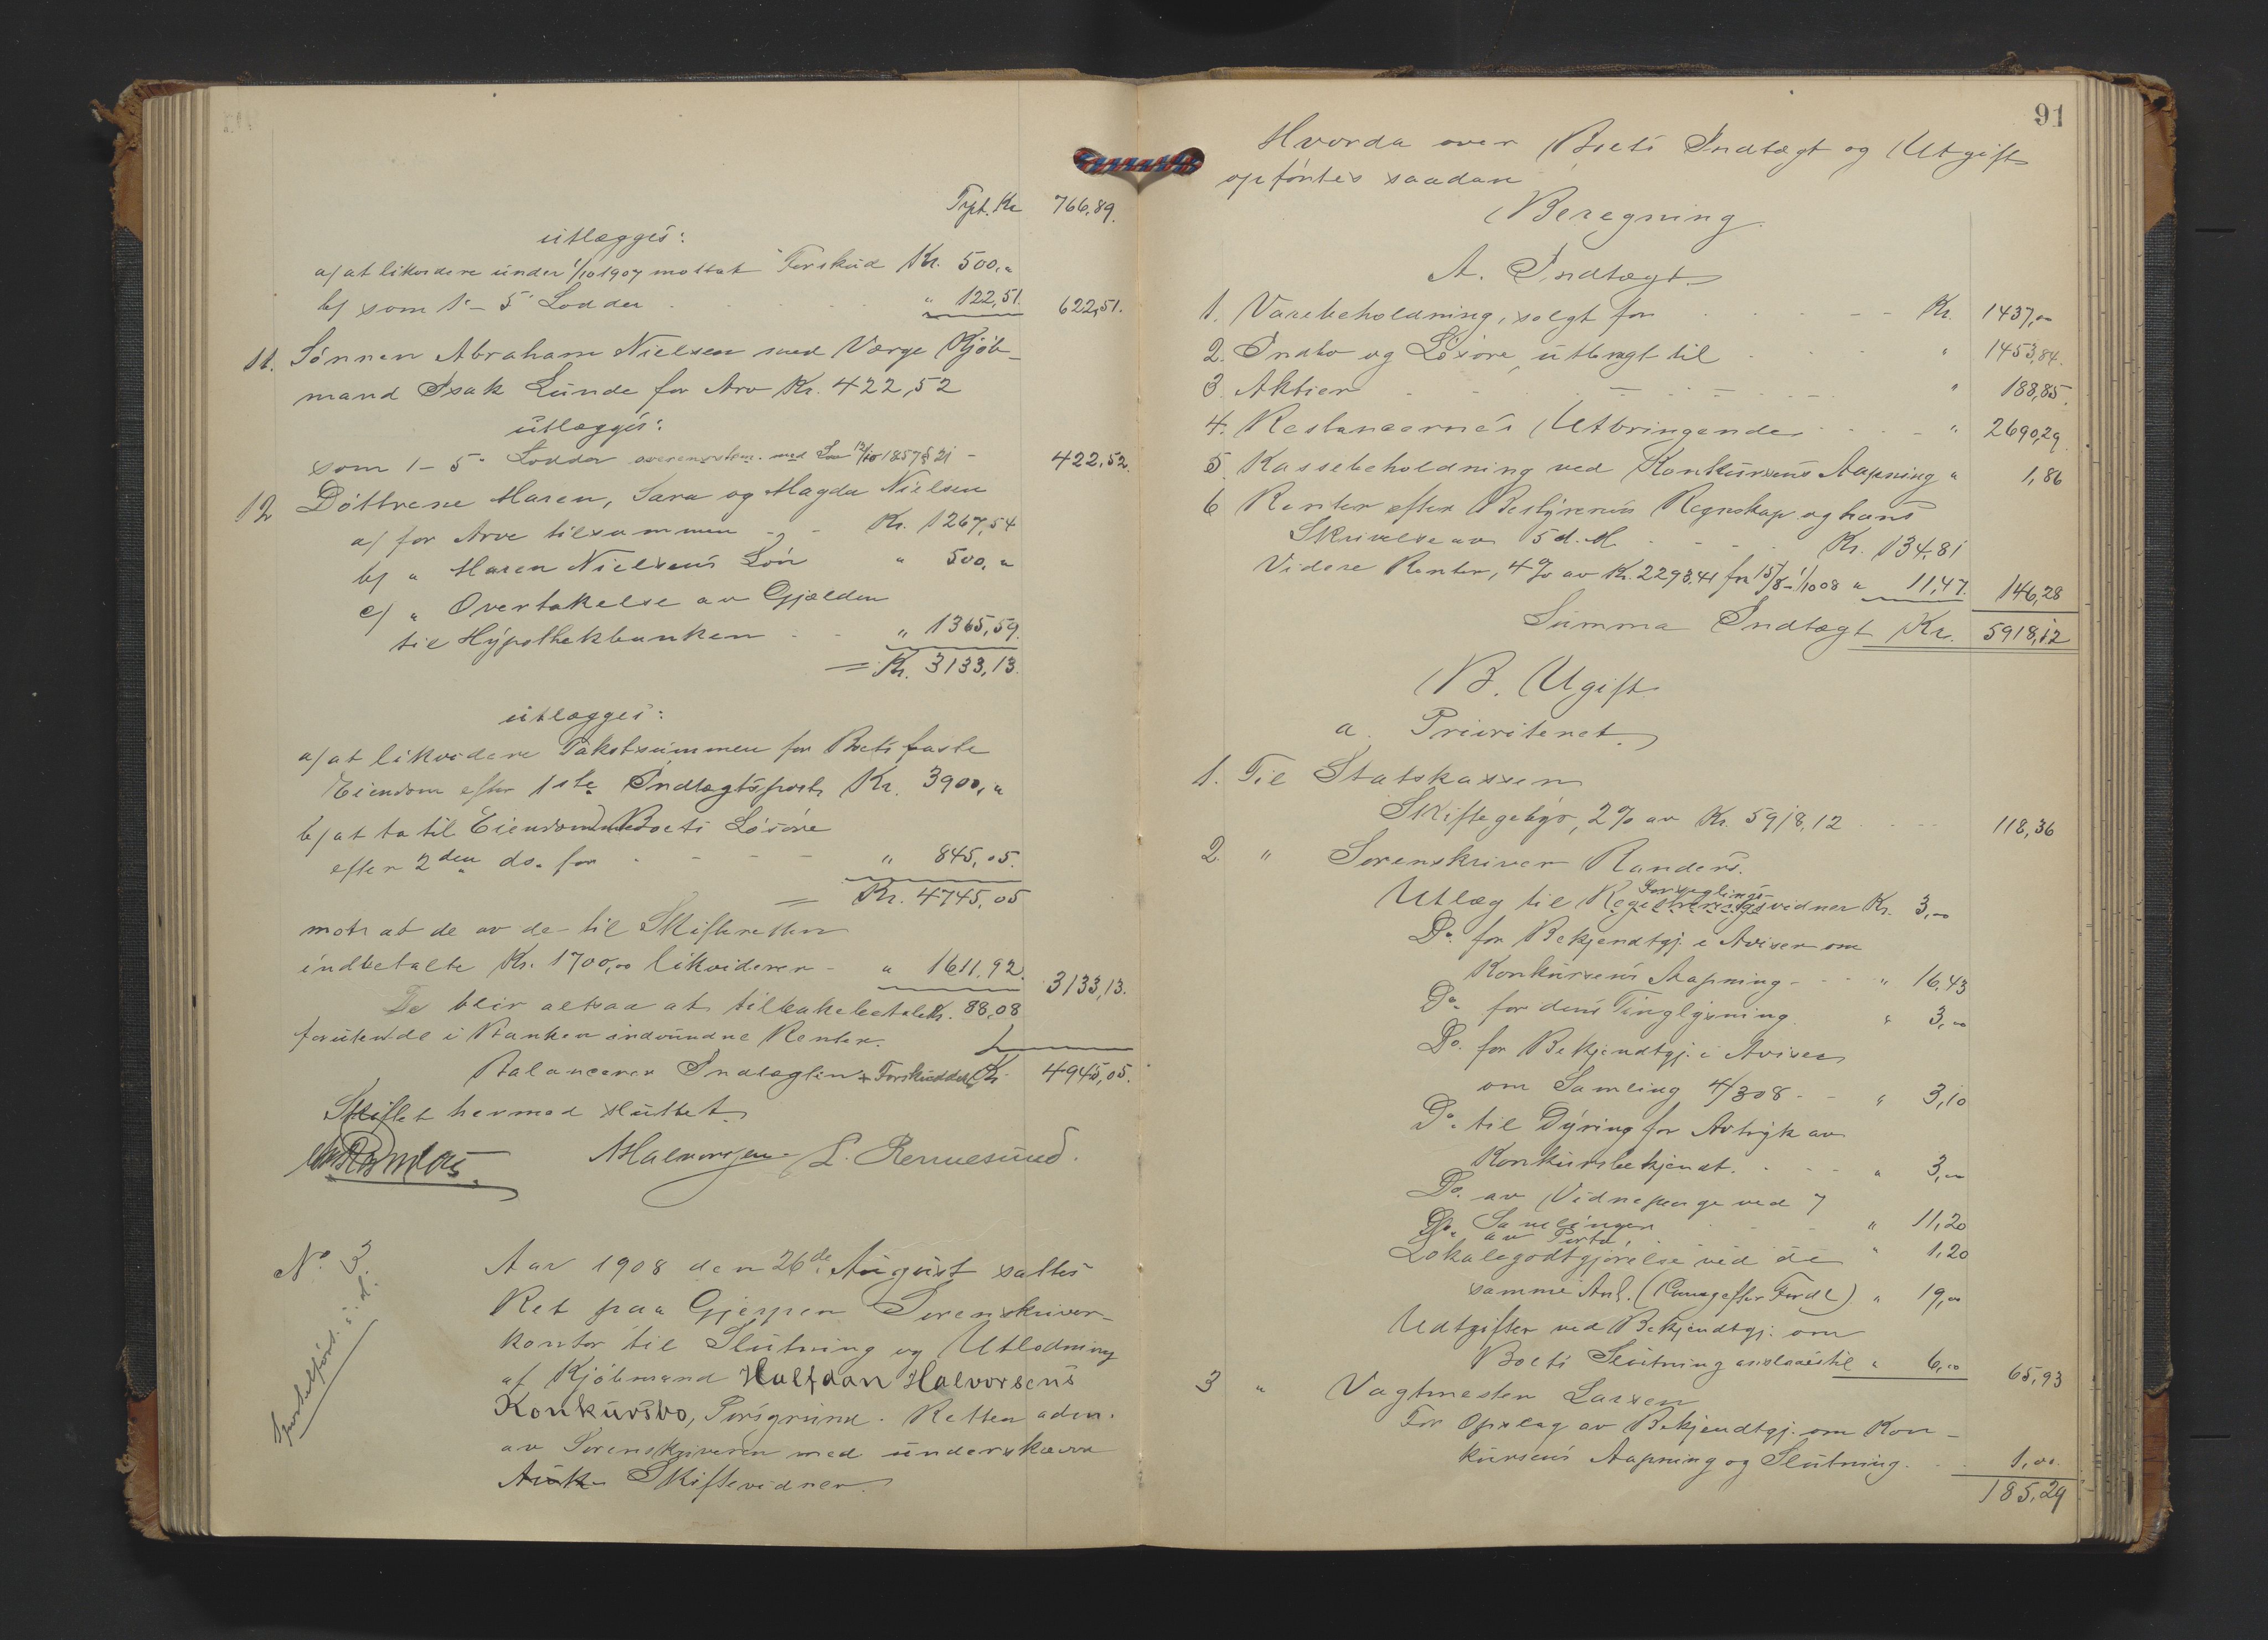 Trpt. Kr 766,89.
utlægges:
a/ at likvidere under 1/10 1907 mottat Forskud Kr. 500,"
b/ som 1 - 5 Lodder " 122,51. 622,51.
11. Sønnen Abraham Nielsen med Værge Kjøb-
mand Isak Lunde for Arv Kr. 422,52
utlægges:
som 1 - 5 Lodder overensstem. med Lov 1857 § 21 - 422,52.
12 Døttrene Maren, Sara og Magda Nielsen
a/ for Arve tilsammen - - Kr. 1267,54
b/ " Maren Nielsens Løn " 500,"
c/ " Overtakelse av Gjælden
til Hypothekbanken - - " 1365,59.
= Kr. 3133,13.
utlægges:
a/ at likvidere Takstsummen for Boets faste
Eiendom efter 1ste Indtægtspost Kr. 3900,"
b/ at ta til Eiendom Boets Løsøre
efter 2den do. for - - - - " 845,05.
= Kr. 4745,05
mot at de av de til Skifteretten
indbetalte Kr. 1700,00 likviderer - " 1611.92. 3133,13.
De blir altsaa at tilbakebetale Kr. 88,08
foruten de i Banken indvundne Renter.
Balancerer Indtægten + Forskuddet Kr. 4945,05.
Skiftet hermed sluttet.
Halvorsen L. Rennesund.
No. 3.
Sportelført i d.
Aar 1908 den 26de August sattes
Ret paa Gjerpen Sorenskriver-
kontor til Slutning og Utlodning
af Kjøbmand Halfdan Halvorsens
Konkursbo, Porsgrund. Retten adm.
av Sorenskriveren med underskrevne
Skiftevidner.
91
Hvorda over Boets Indtægt og Utgift
opførtes saadan
Beregning.
A. Indtægt.
1. Varebeholdning, solgt for - - - Kr. 1437,00
2. Indbo og Løsøre, utbragt til - - " 1453,84.
3. Aktier - - - - - " 188,85.
4. Restancernes Utbringende - - - " 2690,29.
5. Kassebeholdning ved Konkursens Aapning " 1,86
6 Renter efter Bestyrerens Regnskap og hans
Skrivelse av 5 d. M. - - - Kr. 134,81
Videre Renter, 4 % av Kr. 2293,41 fra 15/8 - 1/10 08 " 11,47. 146,28
Summa Indtægt Kr. 5918,12
B. Ugift.
a. Prioriteret.
1. Til Statskassen
Skiftegebyr, 2 % av Kr. 5918,12 - - - 118,36
2. " Sorenskriver Randers.
Forseglings-
Utlæg til Registreringsvidner Kr. 3,00
Do. for Bekjendtgj. i Aviser om
Konkursens Aapning - - - " 16,43
Do. for dens Tinglysning. " 3,00
Do. for Bekjendtgj. i Avisen
om Samling 4/3 08 - - " 3,10
Do. til Dyring for Avtryk av
Konkursbekjendt. - - - " 3,00
Do. av Vidnepenge ved 7
Samlinger - - - " 11,20
Do. av Porto. " 1,20
Lokalegodtgjørelse ved de
samme Anl. " 19,00
Udtgifter ved Bekjendtgj. om
Boets Slutning anslaaes til " 6,00 65,93
3 " Vagtmester Larsen
For Opslag av Bekjendtgj. om Kon-
kursens Aapning og Slutning. - - 1,00.
185,29